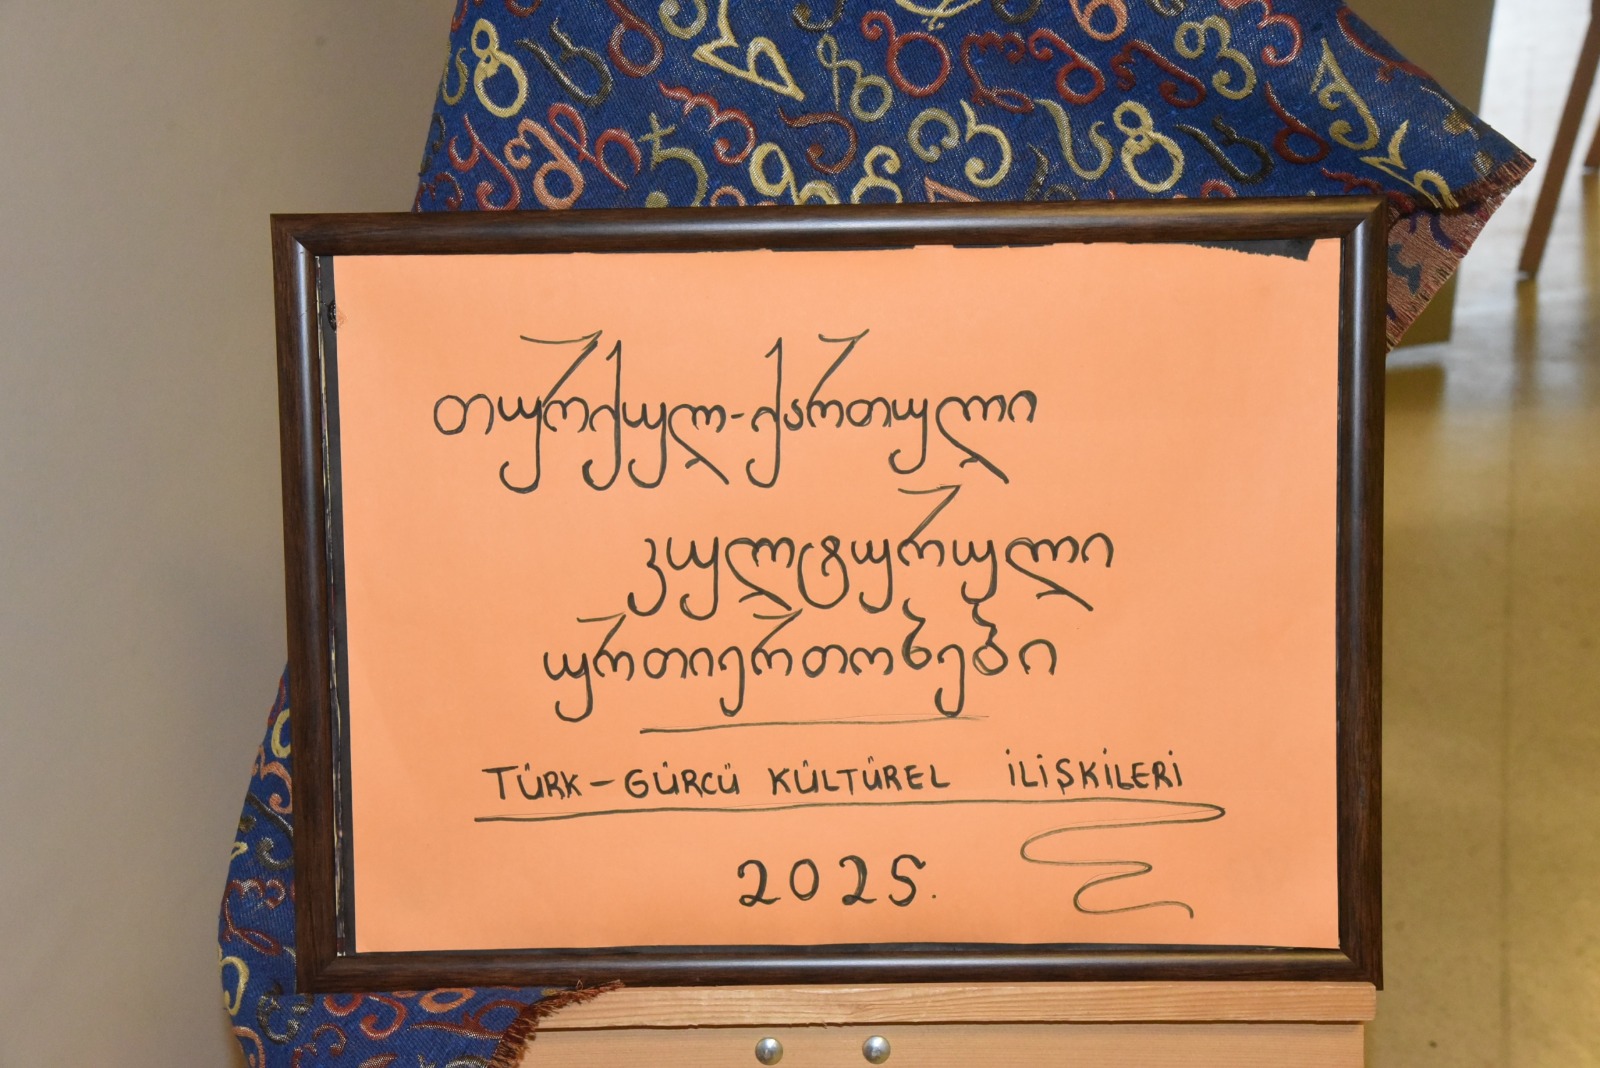 თურქულ-ქართული
კულტურული
ურთიერთობები
TÜRK-GÜRCÜ KÜLTÜREL İLİŞKİLERİ
2025.